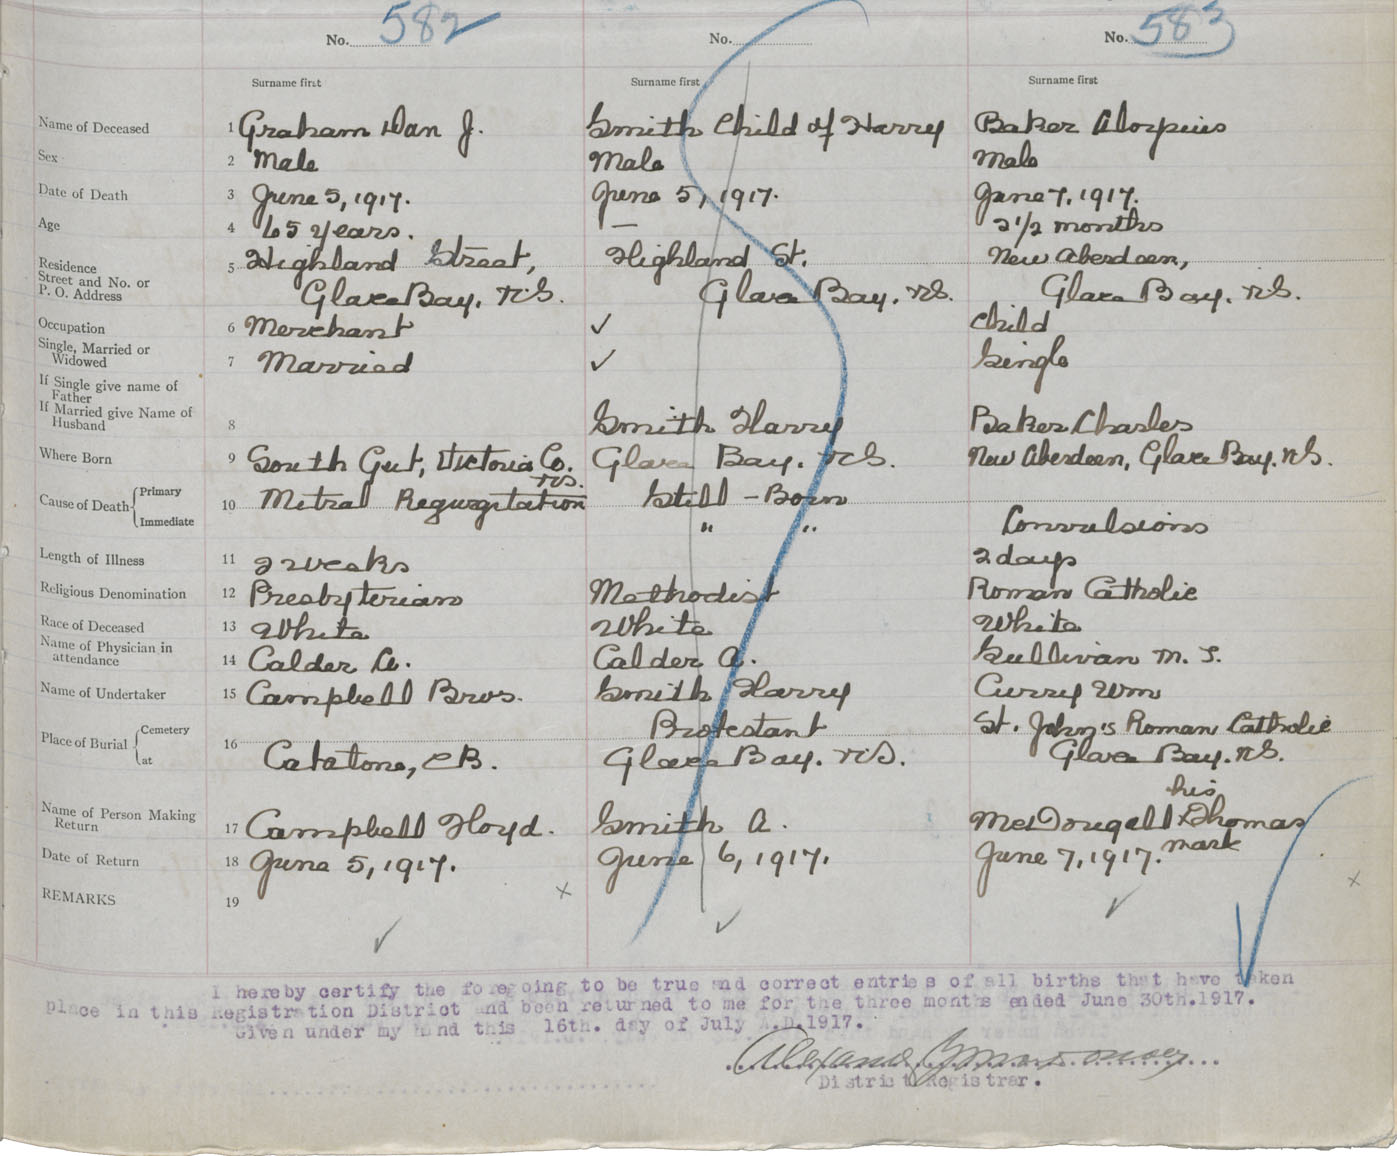 No. 582 No. No. 583
Surname first Surname first Surname first
Name of Deceased 1 Graham Dan J. Smith Child of Harry Baker Alozpius
Sex 2 Male Male Male
Date of Death 3 June 5, 1917. June 5, 1917. June 7, 1917.
Age 4 65 years. — 2 1/2 months
Residence 5 Highland Street, Highland St. New Aberdeen,
Street and No. or
P. O. Address Glace Bay. N.S. Glace Bay. N.S. Glace Bay. N.S.
Occupation 6 Merchant ✓ Child
Single, Married or
Widowed 7 Married ✓ Single
If Single give name of
Father
If Married give Name of
Husband 8 Smith Harry Baker Charles
Where Born 9 South Gut, Victoria Co. N.S. Glace Bay. N.S. New Aberdeen, Glace Bay. N.S.
Cause of Death { Primary 10 Mitral Regurgitation Still - Born
Immediate " " Convulsions
Length of Illness 11 2 weeks 2 days
Religious Denomination 12 Presbyterian Methodist Roman Catholic
Race of Deceased 13 White White White
Name of Physician in
attendance 14 Calder A. Calder A. Sullivan M. T.
Name of Undertaker 15 Campbell Bros. Smith Harry Curry Wm
Place of Burial { Cemetery 16 Protestant St. John's Roman Catholic
at Catalone, C.B. Glace Bay. N.S. Glace Bay. N.S.
Name of Person Making
Return 17 Campbell Floyd. Smith A. McDougall Thomas his mark
Date of Return 18 June 5, 1917. June 6, 1917. June 7, 1917.
REMARKS 19 x x
✓ ✓ ✓
I hereby certify the foregoing to be true and correct entries of all births that have taken
place in this Registration District and been returned to me for the three months ended June 30th.1917.
Given under my hand this 16th. day of July A.D.1917.
District Registrar.